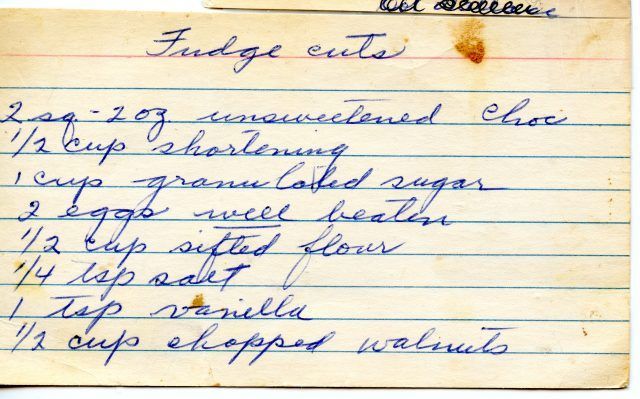 Fudge cuts
2 sq. - 2 oz. unsweetened choc
1/2 cup shortening
1 cup granulated sugar
2 eggs well beaten
1/2 cup sifted flour
1/4 tsp salt
1 tsp vanilla
1/2 cup chopped walnuts